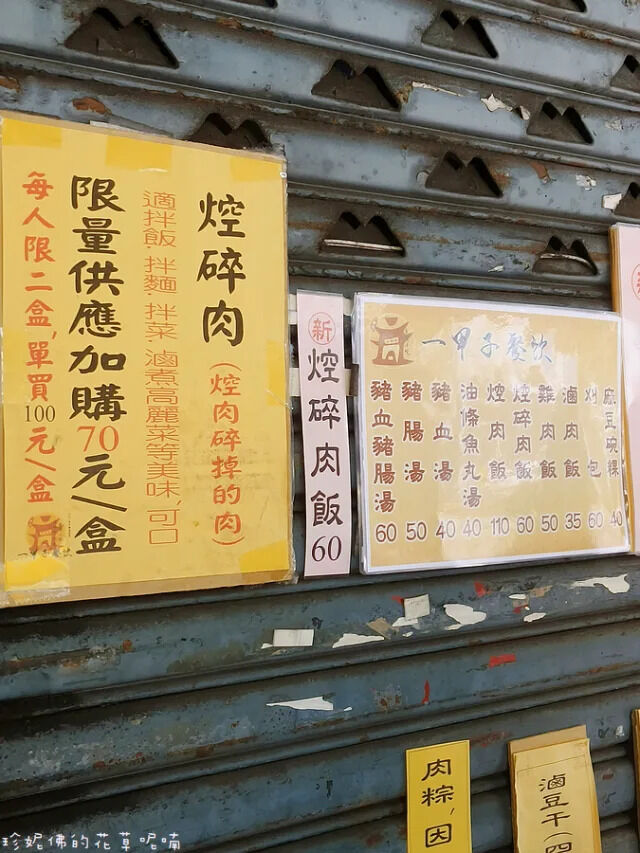 焢碎肉(焢肉碎掉的肉)
適拌飯.拌麵.拌菜.滷煮高麗菜等美味!可口
限量供應加購70元/盒
每人限二盒,單買100元/盒
新
焢碎肉飯60
一甲子餐飲
麻豆碗粿 40
刈包 60
滷肉飯 35
雞肉飯 50
焢碎肉飯 60
焢肉飯 110
油條魚丸湯 40
豬血湯 40
豬腸湯 50
豬血豬腸湯 60
肉粽,因
滷豆干(四
珍妮佛的花草呢喃